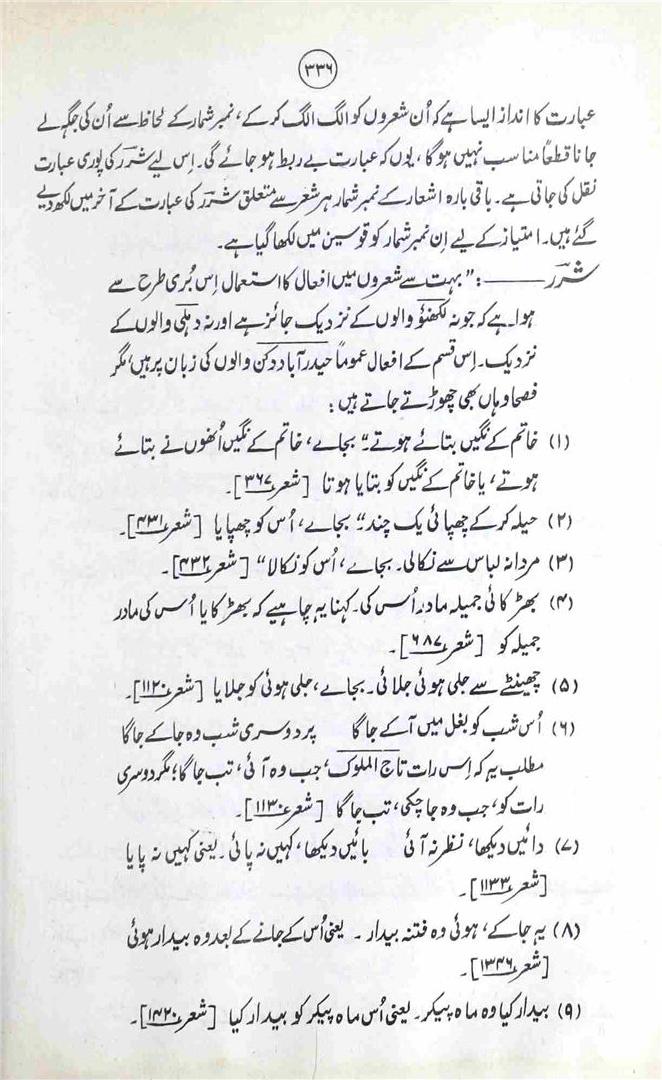 ۳۳۶
عبارت کا انداز ایسا ہے کہ اُن شعروں کو الگ الگ کر کے، نمبر شمار کے لحاظ سے اُن کی جگہ لے
جانا قطعاً مناسب نہیں ہوگا، یوں کہ عبارت بے ربط ہو جائے گی۔ اِس لیے شررؔ کی پوری عبارت
نقل کی جاتی ہے۔ باقی بارہ اشعار کے نمبر شمار ہر شعر سے متعلق شررؔ کی عبارت کے آخر میں لکھ دیے
گئے ہیں۔ امتیاز کے لیے اِن نمبر شمار کو قوسین میں لکھا گیا ہے۔
شررؔ ــــــــــ : ”بہت سے شعروں میں افعال کا استعمال اِس بُری طرح سے
ہوا ہے کہ جو نہ لکھنؤ والوں کے نزدیک جائز ہے اور نہ دہلی والوں کے
نزدیک۔ اِس قسم کے افعال عموماً حیدرآباد دکن والوں کی زبان پر ہیں؛ مگر
فصحا وہاں بھی چھوڑتے جاتے ہیں :
(۱) خاتم کے نگیں بتائے ہوتے۔“ بجاے، خاتم کے نگیں اُنھوں نے بتائے
ہوتے، یا خاتم کے نگیں کو بتایا ہوتا [شعر ۳۶۷]۔
(۲) حیلہ کر کے چھپائی یک چند۔“ بجاے، اُس کو چھپایا [شعر ۴۳۱]۔
(۳) مردانہ لباس سے نکالی۔ بجاے، اُس کو نکالا“ [شعر ۴۳۲]۔
(۴) بھڑکائی جمیلہ مادر اُس کی۔ کہنا یہ چاہیے کہ بھڑکایا اُس کی مادر
جمیلہ کو [شعر ۶۸۷]۔
(۵) چھینٹے سے جلی ہوئی جلائی۔ بجاے، جلی ہوئی کو جلایا [شعر ۱۱۲۰]۔
(۶) اُس شب کو بغل میں آ کے جاگا پر دوسری شب وہ جا کے جاگا
مطلب یہ کہ اِس رات تاج الملوک، جب وہ آئی، تب جاگا؛ مگر دوسری
رات کو، جب وہ جا چکی، تب جاگا [شعر ۱۱۳۰]۔
(۷) دائیں دیکھا، نظر نہ آئی بائیں دیکھا، کہیں نہ پائی۔ یعنی کہیں نہ پایا
[شعر ۱۱۳۳]۔
(۸) یہ جا کے، ہوئی وہ فتنہ بیدار۔ یعنی اُس کے جانے کے بعد وہ بیدار ہوئی
[شعر ۱۳۴۶]۔
(۹) بیدار کیا وہ ماہ پیکر۔ یعنی اُس ماہ پیکر کو بیدار کیا [شعر ۱۴۲۰]۔